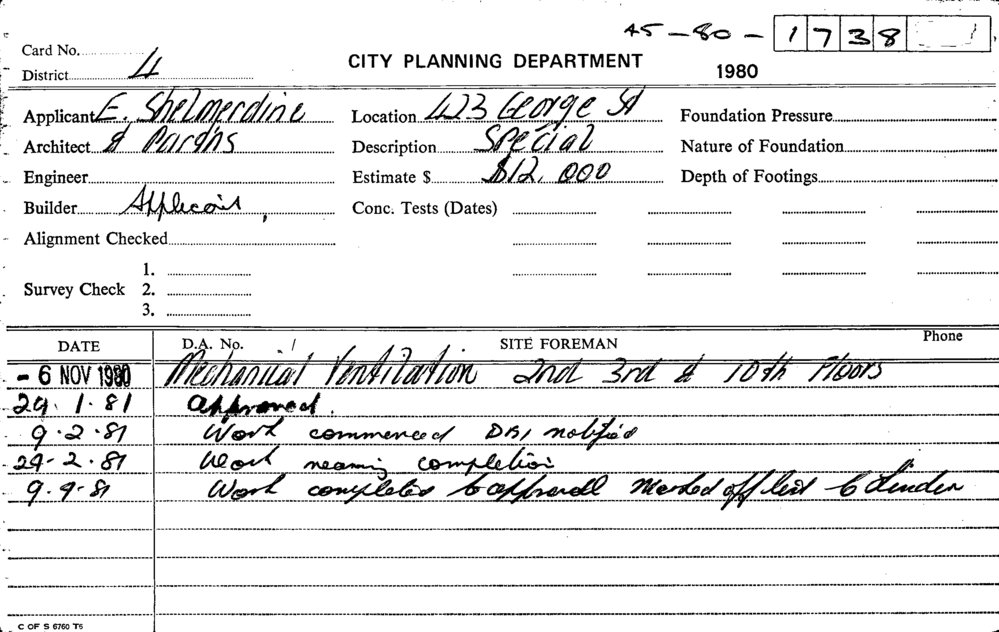 45-80-1738
Card No.
District 4
CITY PLANNING DEPARTMENT
1980
Applicant E. Shelmerdine
Location 423 George St
Foundation Pressure
Architect & Partns
Description Special
Nature of Foundation
Engineer
Estimate $ $12,000
Depth of Footings
Builder Applicant
Conc. Tests (Dates)
Alignment Checked
1.
Survey Check 2.
3.
DATE D.A. No. / SITE FOREMAN Phone
- 6 NOV 1980 Mechanical Ventilation 2nd 3rd & 10th Floors
29.1.81 Approved.
9.2.81 Work commenced notified
29-2.81 Work nearing completion
9.9.81 Work completed to approval Marked off list
C OF S 6760 T6